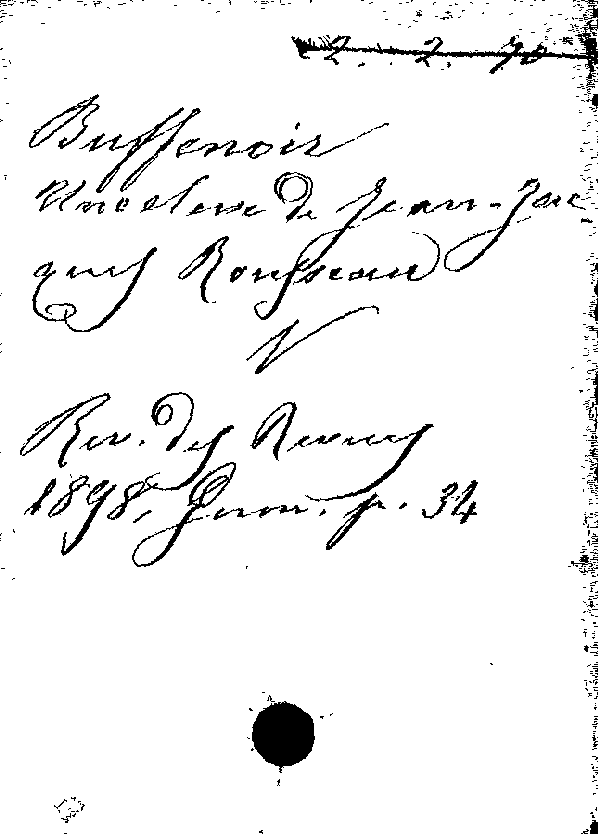 2. 2. 70
Buffenoir
Une eleve de Jean-Jac
ques Rousseau
Rev. des Revues
1898, p. 34